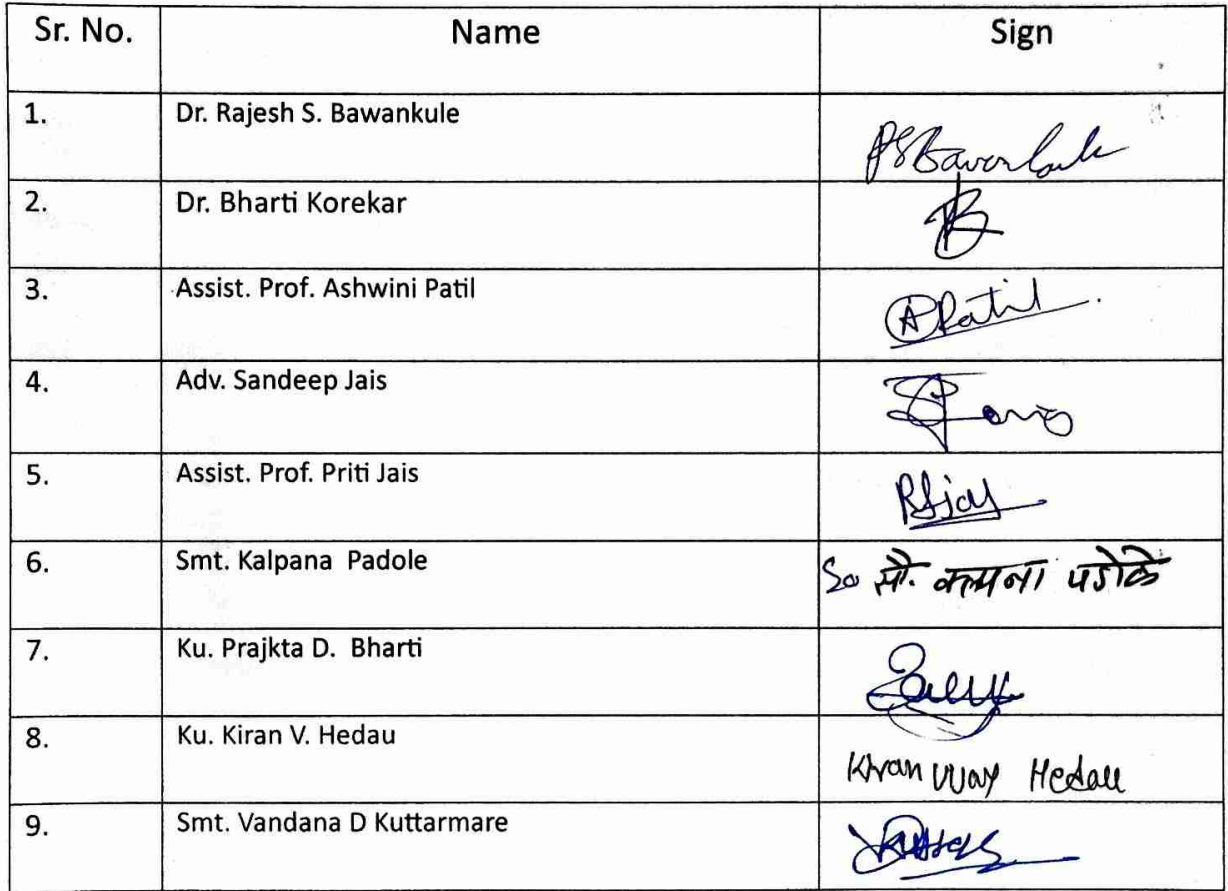 Sr. No. Name Sign
1. Dr. Rajesh S. Bawankule RSBawankule
2. Dr. Bharti Korekar
3. Assist. Prof. Ashwini Patil APatil
4. Adv. Sandeep Jais
5. Assist. Prof. Priti Jais
6. Smt. Kalpana Padole So सौ. कल्पना पडोळे
7. Ku. Prajkta D. Bharti
8. Ku. Kiran V. Hedau Kiran Vijay Hedau
9. Smt. Vandana D Kuttarmare